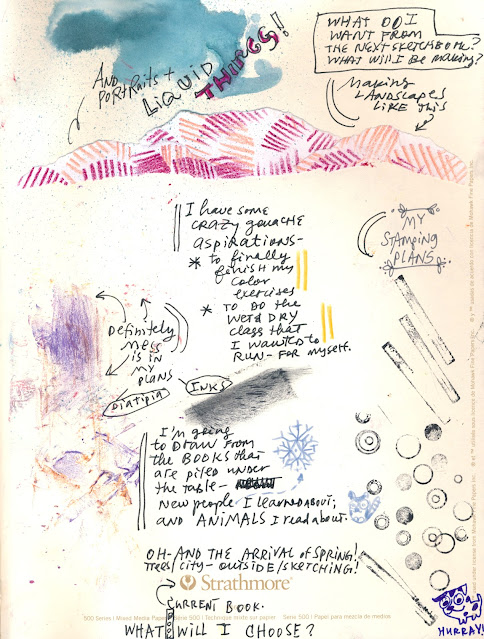 WHAT DO I
WANT FROM
THE NEXT SKETCHBOOK?
WHAT WILL I BE MAKING?
AND
PORTRAITS +
LIQUID
THINGS!
MAKING
LANDSCAPES
LIKE THIS
I HAVE SOME
CRAZY gouache
ASPIRATIONS-
* to finally
finish my
color
exercises
* TO DO THE
WET & DRY
class that
I WANTED to
RUN - FOR MYSELF.
MY
STAMPING
PLANS
Definitely
MESS
is in
MY
PLANS
INKS
I'm going
to DRAW FROM
the BOOKS that
are piled under
the table -
new people I learned about;
and ANIMALS I read about.
OH- AND THE ARRIVAL OF SPRING!
Trees/city - outside/sketching!
Strathmore
500 Series | Mixed Media Paper Série 500 | Technique mixte sur papier Serie 500 | Papel para mezcla de medios
CURRENT BOOK.
WHAT WILL I CHOOSE?
HURRAY!